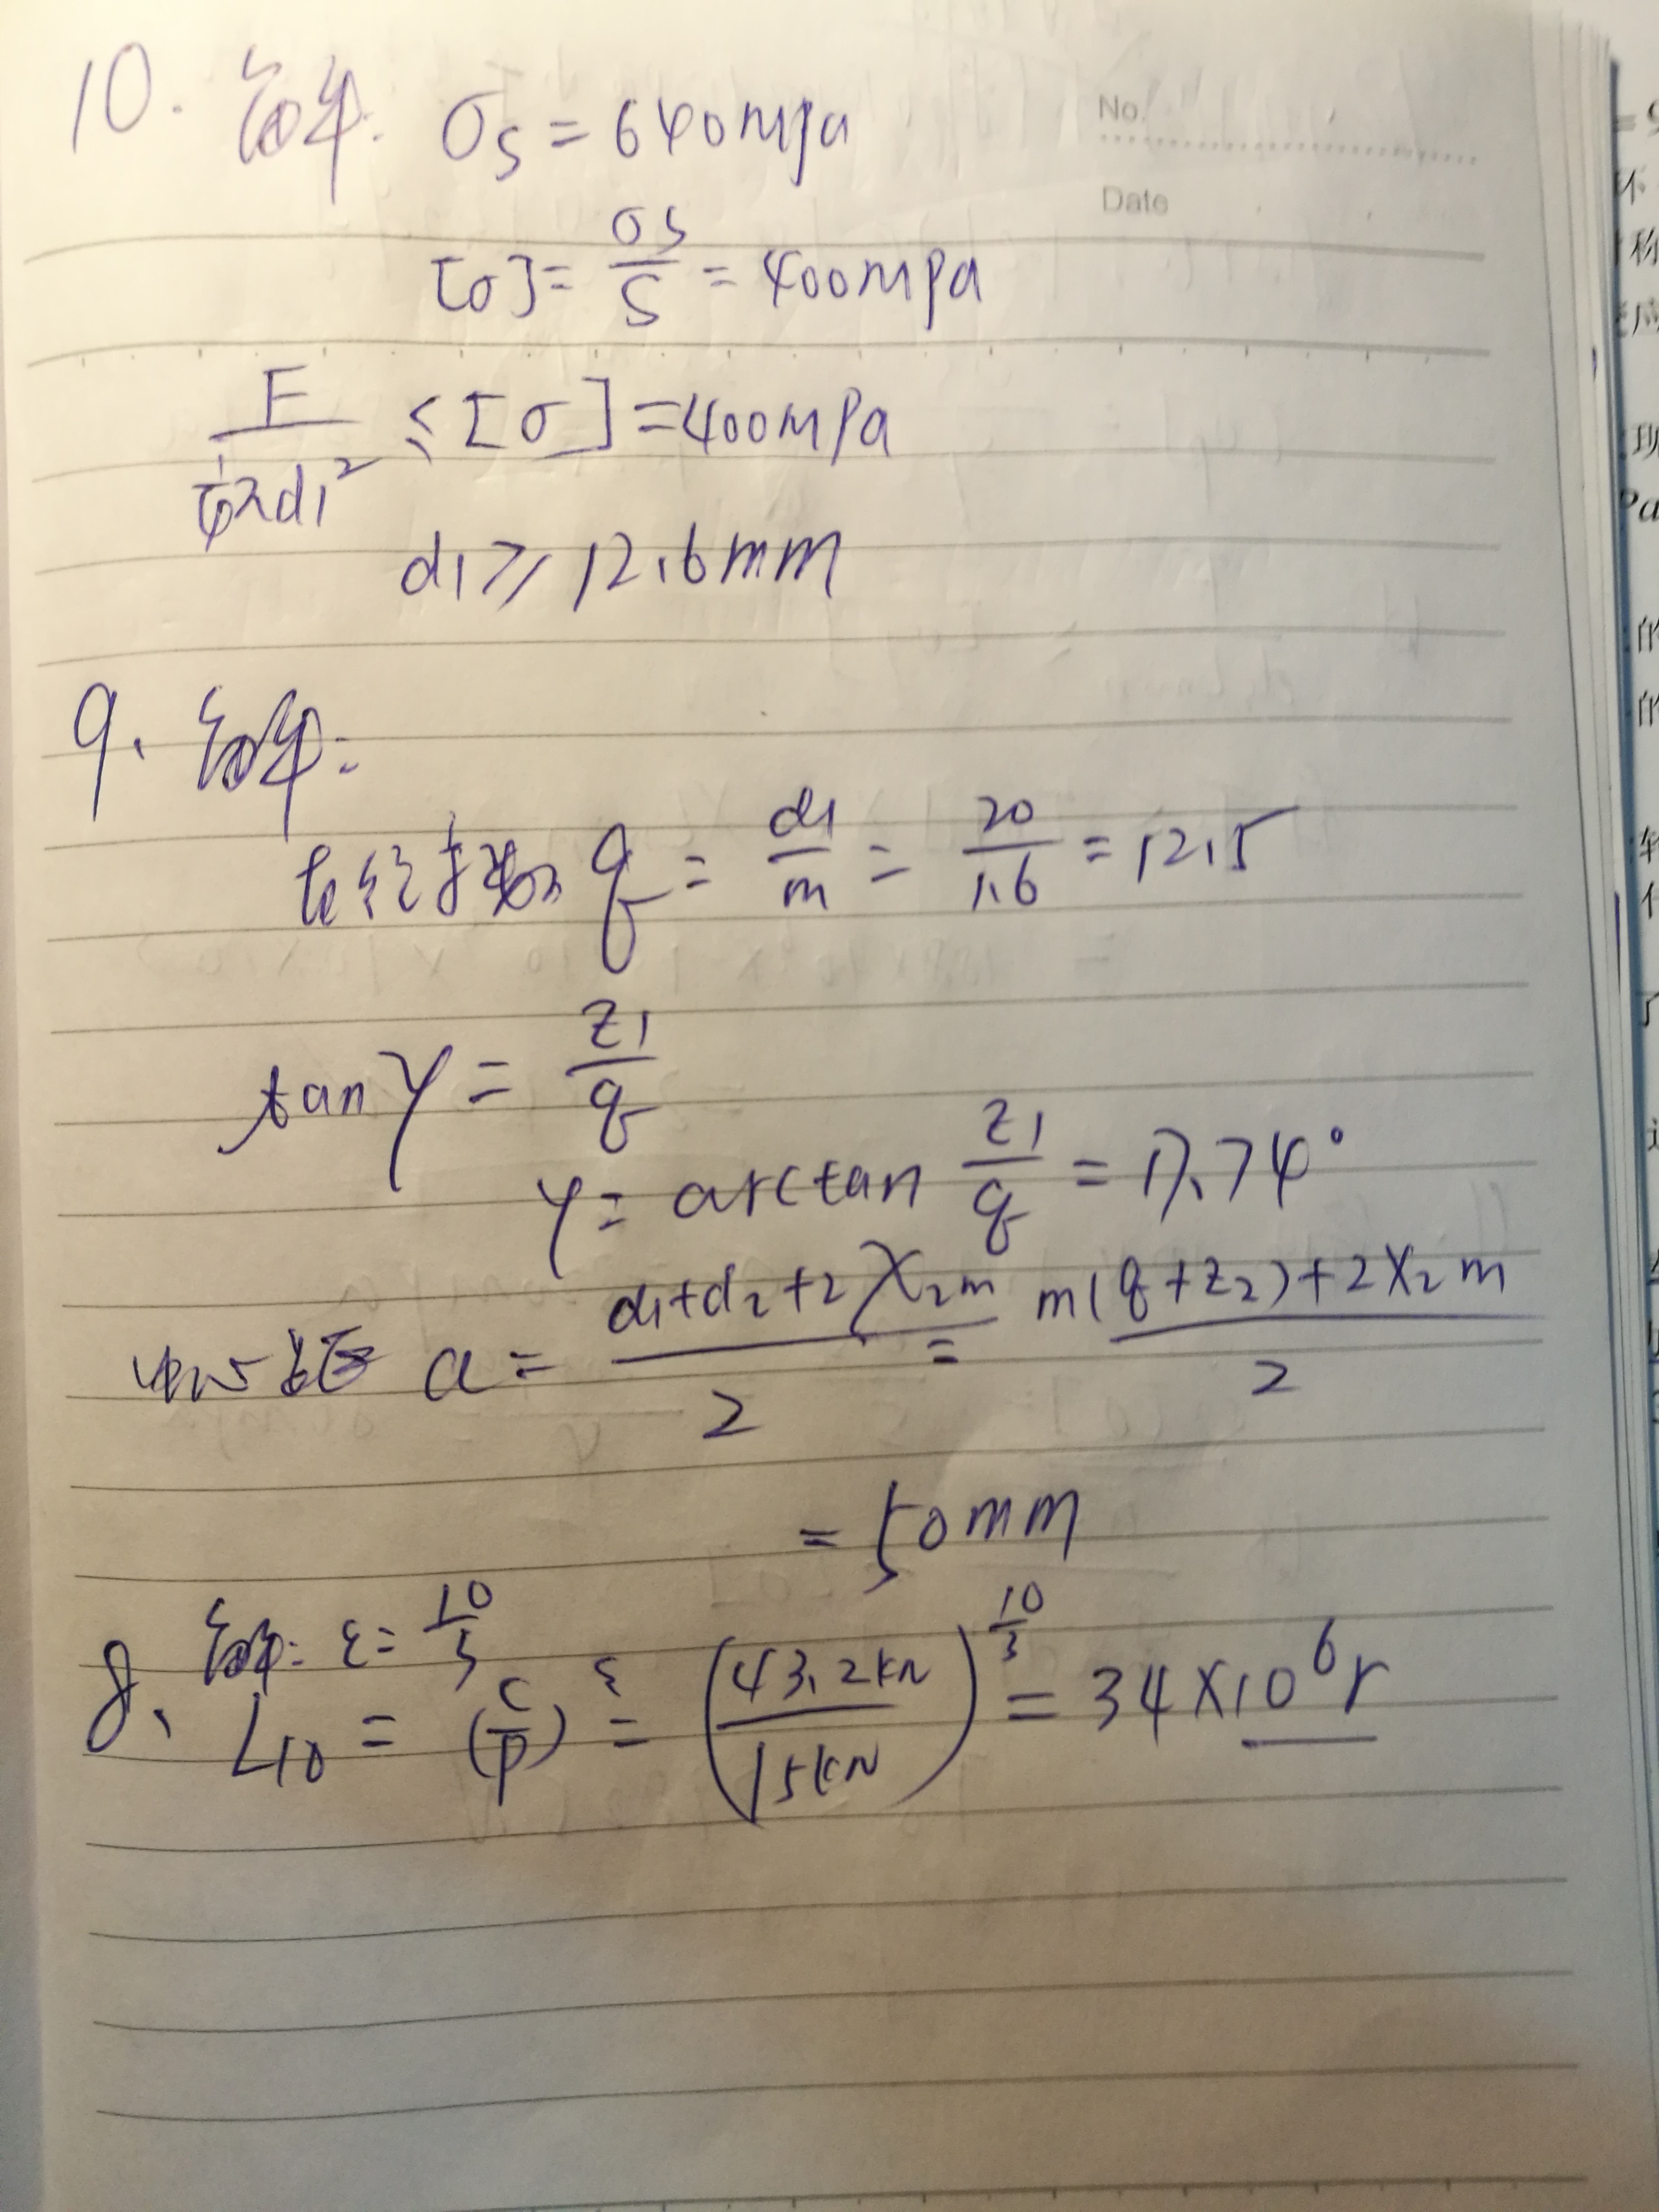 No.
Date
10. 解: σs = 640mpa
[σ] = σs/S = 400mpa
F/(1/4 π d1²) ≤ [σ] = 400mpa
d1 ≥ 12.6mm
9、解:
直径系数 q = d1/m = 20/1.6 = 12.5
tanγ = z1/q
γ = arctan z1/q = 17.74°
中心距 a = (d1+d2+2X2m)/2 = (m(q+z2)+2X2m)/2
= 50mm
8、解: ε = 10/3
L10 = (C/P)^ε = (43.2kN/15kN)^10/3 = 34×10⁶r
称
应
现
Pa
的
的
转
了